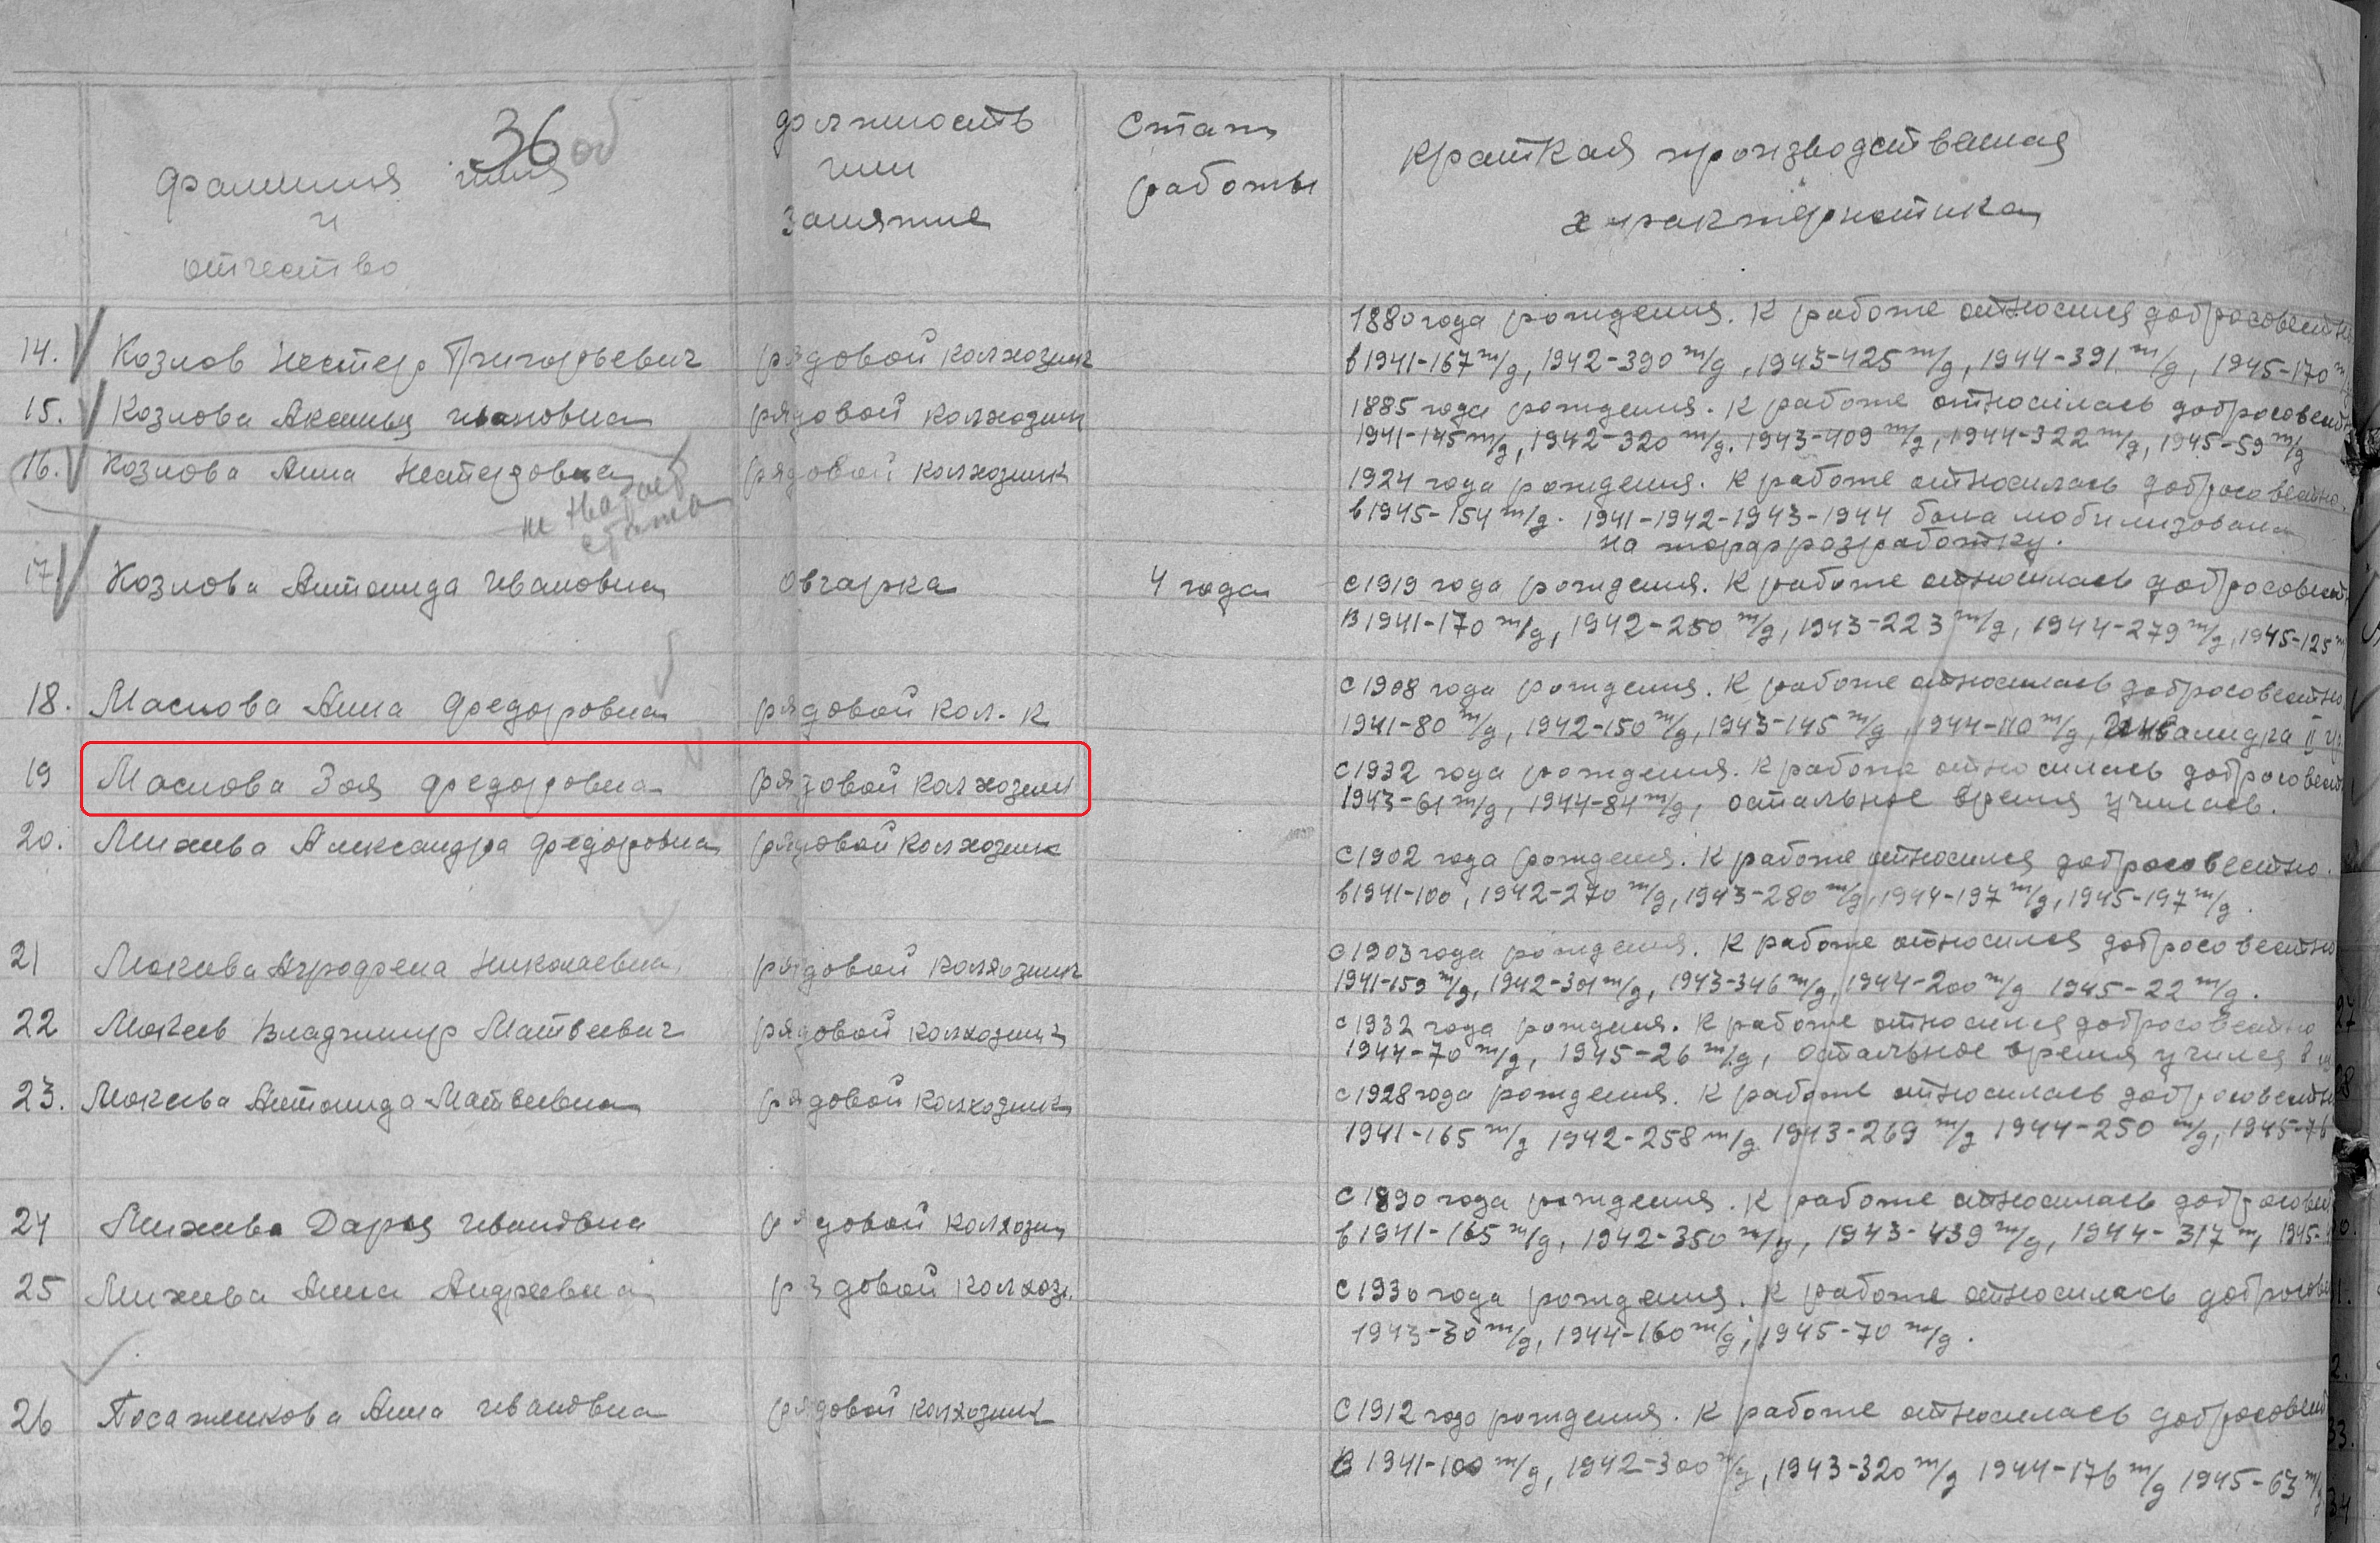 36 об
Фамилия имя
и
отчество
должность
или
занятие
Стаж
работы
Краткая производственная
характеристика
1880 года рождения. К работе относился добросовестно
14. Козлов Нестер Григорьевич рядовой колхозник в 1941-167 т/д, 1942-390 т/д, 1943-425 т/д, 1944-391 т/д, 1945-170
15. Козлова Аксинья Ивановна рядовой колхозник 1885 года рождения. К работе относилась добросовестн
1941-145 т/д, 1942-320 т/д. 1943-409 т/д, 1944-322 т/д, 1945-59 т/д
16. Козлова Анна Нестеровна рядовой колхозник 1924 года рождения. К работе относилась добросовестно.
не
стажа
в 1945-154 т/д. 1941-1942-1943-1944 была мобилизована
на торфразработку.
17. Козлова Антонида Ивановна Овчарка 4 года с 1919 года рождения. К работе относилась добросовест
В 1941-170 т/д, 1942-250 т/д, 1943-223 т/д, 1944-279 т/д, 1945-125
с 1908 года рождения. К работе относилась добросовестно
18. Маслова Анна Федоровна рядовой кол-к 1941-80 т/д, 1942-150 т/д, 1943-145 т/д, 1944-110 т/д, Инвалидка II гр
19 Маслова Зоя Федоровна рядовой колхозник с 1932 года рождения. К работе относилась добросовест
1943-61 т/д, 1944-84 т/д, остальное время училась.
20. Михева Александра Федоровна рядовой колхозник с 1902 года рождения. К работе относился добросовестно.
в 1941-100, 1942-270 т/д, 1943-280 т/д, 1944-197 т/д, 1945-197 т/д.
с 1903 года рождения. К работе относился добросовестно
21 Мокева Николаевна рядовой колхозник 1941-159 т/д, 1942-301 т/д, 1943-346 т/д, 1944-200 т/д 1945-22 т/д.
22 Мокеев Владимир Матвеевич рядовой колхозник с 1932 года рождения. К работе относился добросовестно
1944-70 т/д, 1945-26 т/д, остальное время учился в
23. Мокева Антонида Матвеевна рядовой колхозник с 1928 года рождения. К работе относилась добросовестн
1941-165 т/д 1942-258 т/д 1943-269 т/д 1944-250 т/д, 1945-76
с 1890 года рождения. К работе относилась добросовест
24 Михева Дарья Ивановна рядовой колхозн в 1941-165 т/д, 1942-350 т/д, 1943-439 т/д, 1944-317 т, 1945-
25 Михева Анна Андреевна рядовой колхоз. с 1930 года рождения. К работе относилась добросове
1943-30 т/д, 1944-160 т/д, 1945-70 т/д.
26 Посаженкова Анна Ивановна рядовой колхозник с 1912 года рождения. К работе относилась добросовест
В 1941-100 т/д, 1942-300 т/д, 1943-320 т/д 1944-176 т/д 1945-63 т/д